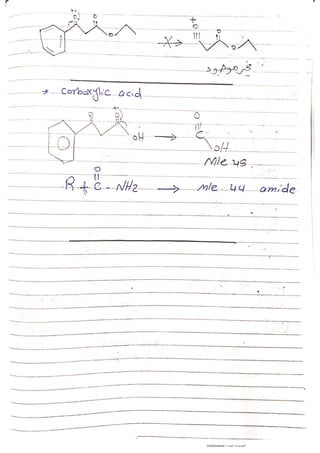 O
O
O
X→
+
O
|||
O
O
→ Carboxylic acid
O
O
OH
→
O
|||
C
OH
M/e 45.
O
||
R + C - NH2 → M/e 44 amide